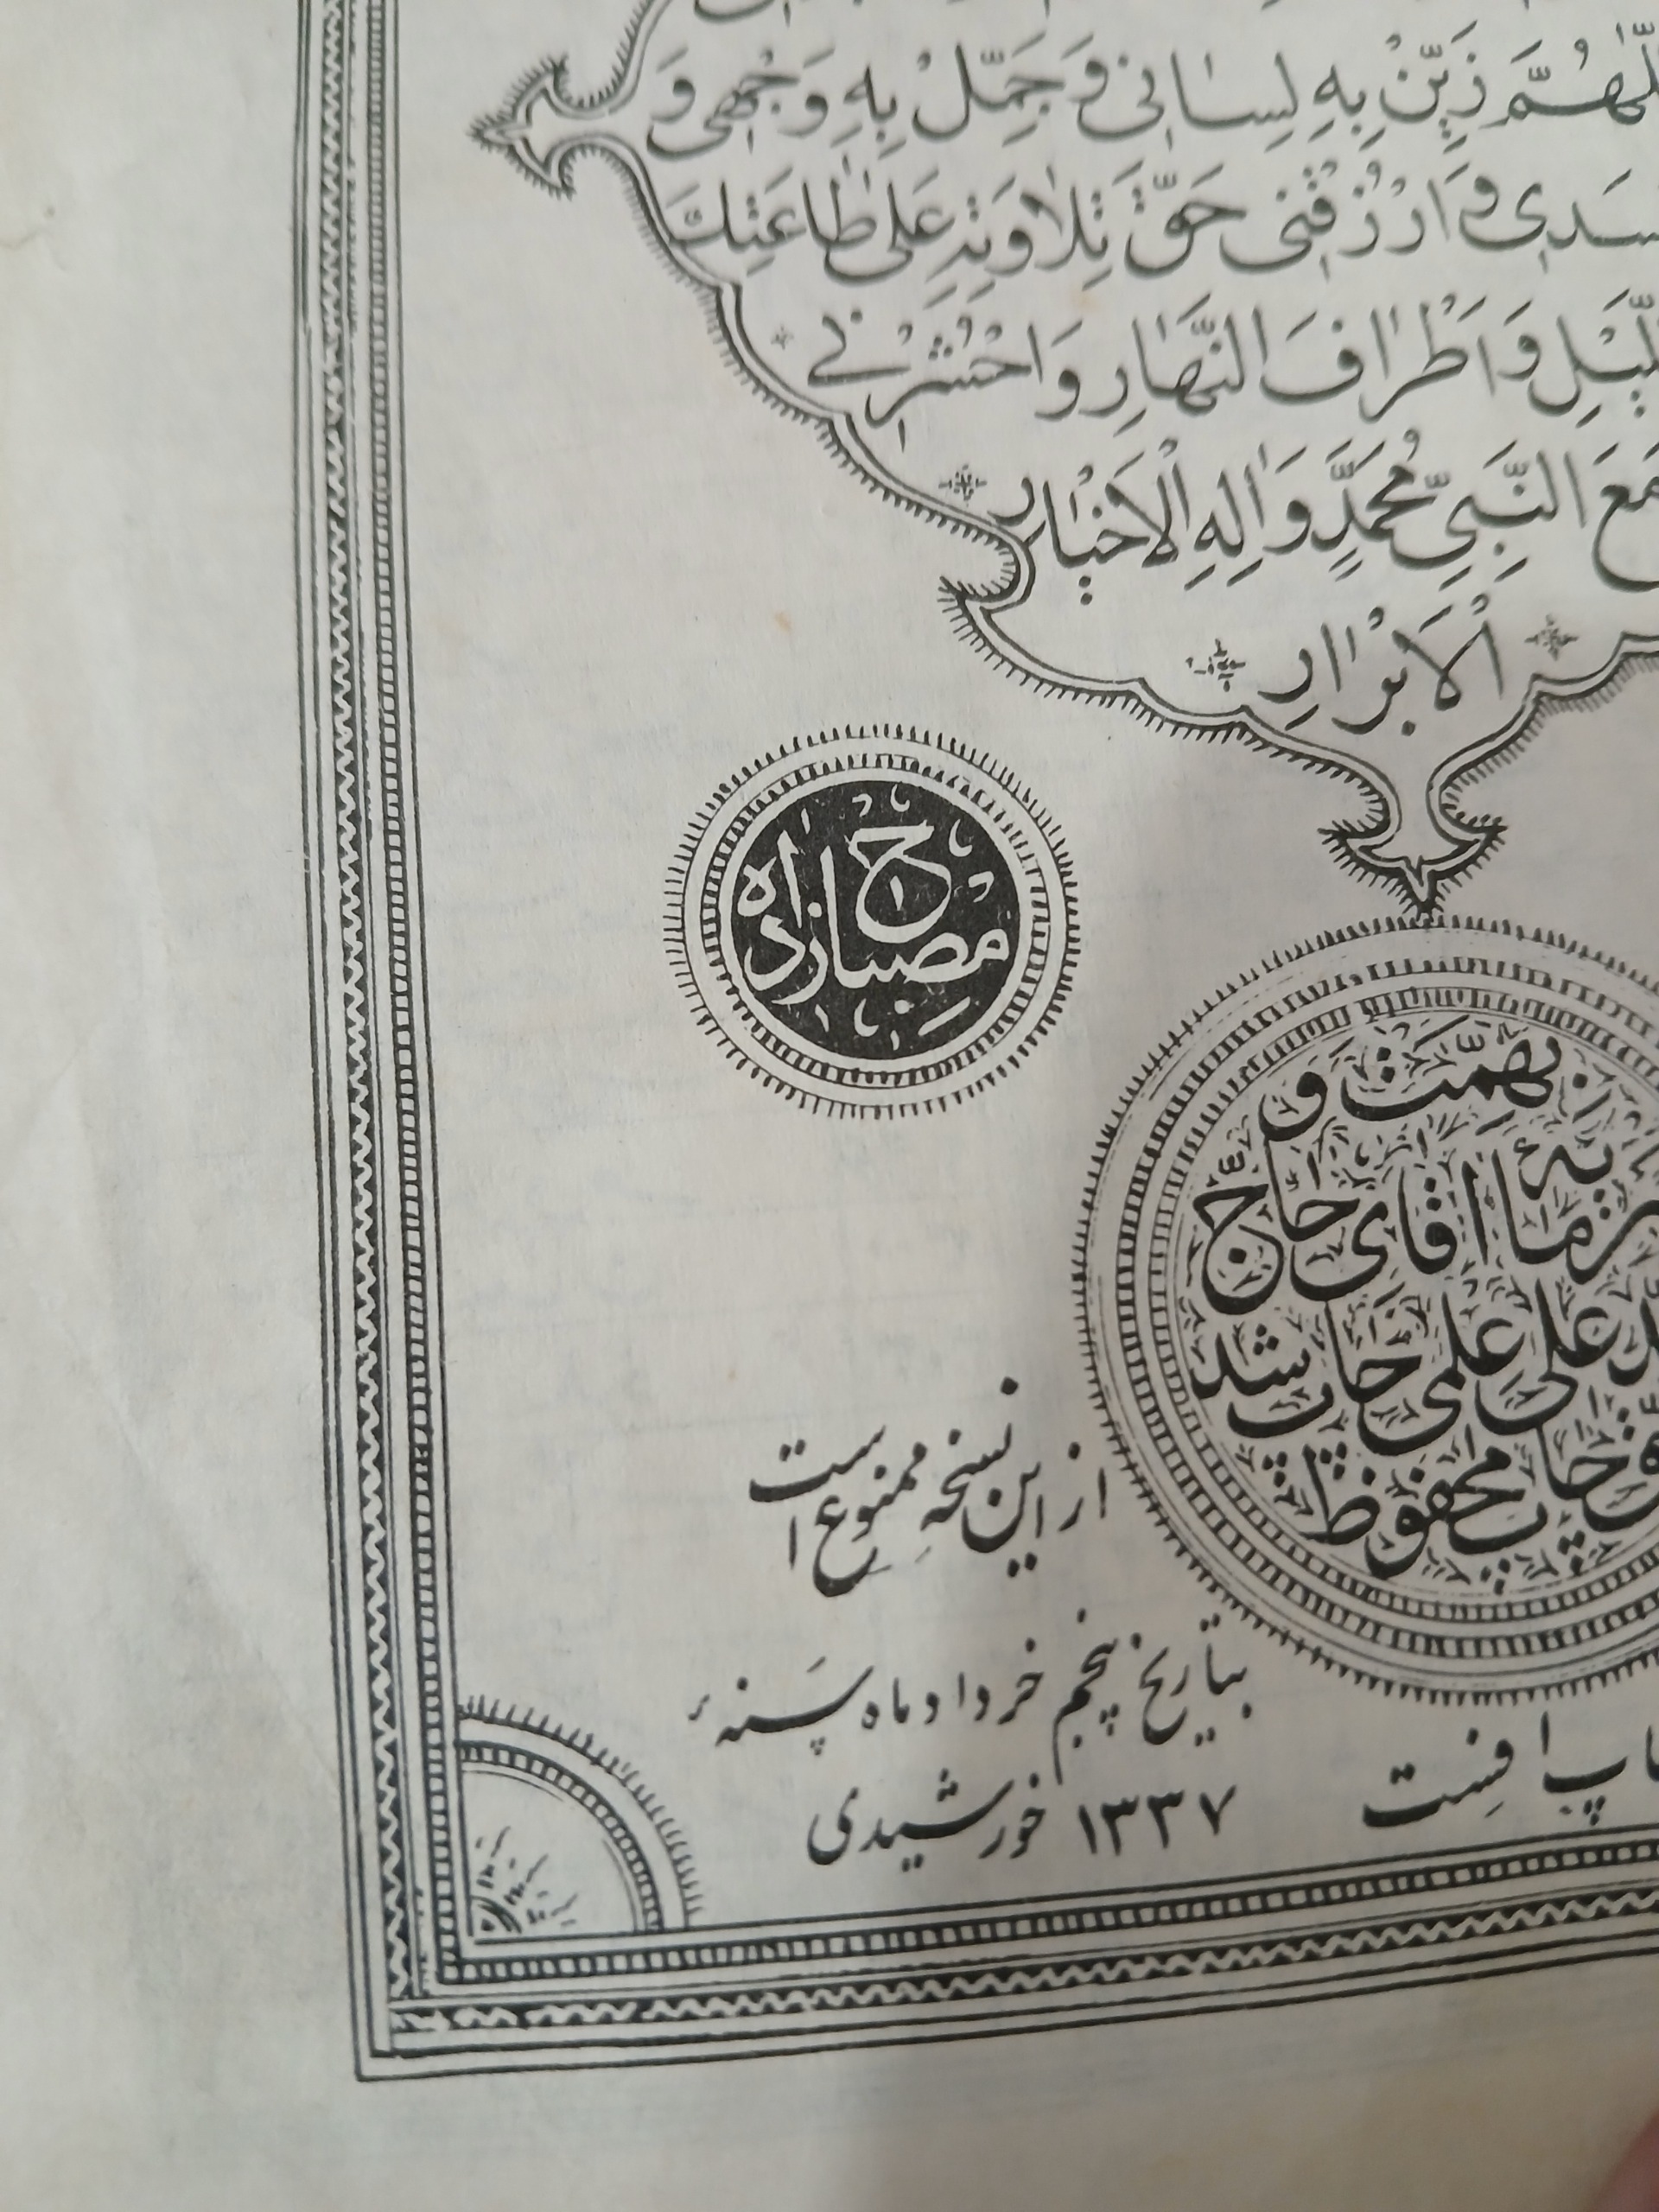 اَللّٰهُمَّ زَيِّنْ بِهِ لِسٰانى وَ جَمِّلْ بِهِ وَجْهى وَ
وَارْزُقْنى حَقَّ تِلاٰوَتِهِ عَلىٰ طٰاعَتِكَ
وَاَطْرٰافَ النَّهٰارِ وَاحْشُرْنى
مَعَ النَّبِىِّ مُحَمَّدٍ وَاٰلِهِ الْاَخْيٰارِ
الْاَبْرٰارِ
ح
مصباح‌زاده
بهمّت و
آقای حاج
علی علمی چاپ شد
چاپ محفوظ
از این نسخه ممنوع است
بتاریخ پنجم خرداد ماه سَنهٔ
۱۳۳۷ خورشیدی
افست